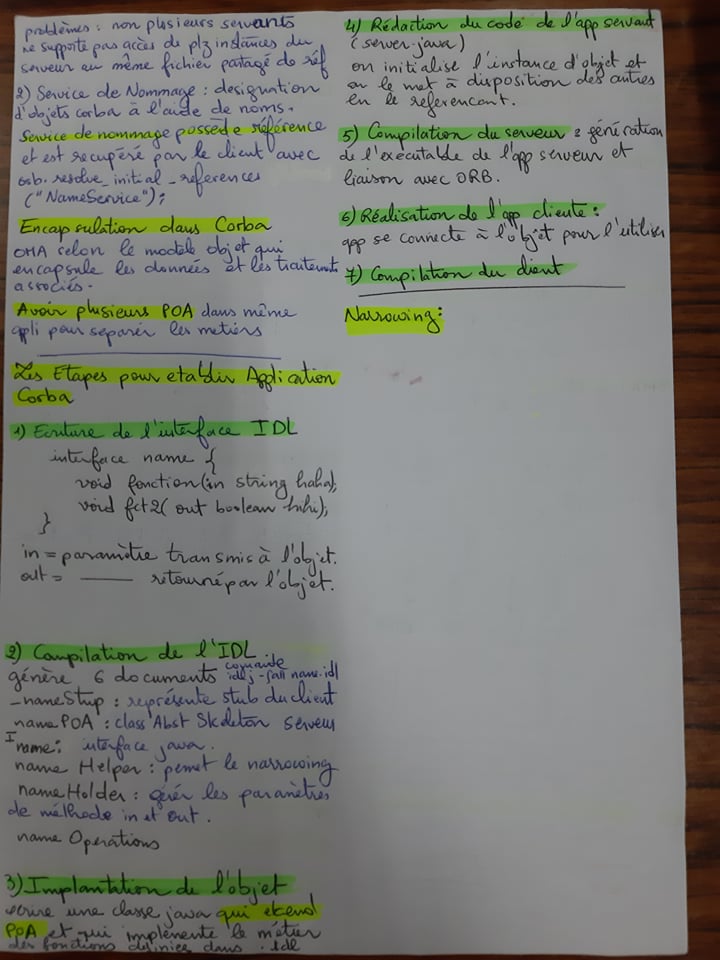 problèmes : non plusieurs servants
ne supporte pas accès de plz instances du
serveur au même fichier partagé de réf
2) Service de Nommage : designation
d'objets corba à l'aide de noms.
Service de nommage possède référence
et est recupéré par le client avec
orb. resolve_initial_references
("NameService");
Encapsulation dans Corba
OMA selon le modele objet qui
encapsule les données et les traitements
associés.
Avoir plusieurs POA dans même
appli pour separer les metiers
Les Etapes pour etablir Application
Corba
1) Ecriture de l'interface IDL
interface name {
void fonction(in string haha);
void fct2( out boolean hihi);
}
in = paramètre transmis à l'objet.
out = —— retourné par l'objet.
2) Compilation de l'IDL
génère 6 documents commande idlj -fall name.idl
_nameStup : représente stub du client
name POA : class Abst Skeleton serveur
I name : interface java.
name Helper : pemet le narrowing
name Holder : gérer les paramètres
de méthode in et out.
name Operations
3) Implantation de l'objet
ecrire une classe java qui etend
POA et qui implènente le métier
des fonctions definies dans .idl
4) Rédaction du code de l'app servant
(server.java)
on initialise l'instance d'objet et
on le met à disposition des autres
en le referencant.
5) Compilation du serveur : génération
de l'executable de l'app serveur et
liaison avec ORB.
6) Réalisation de l'app cliente :
app se connecte à l'objet pour l'utiliser
7) Compilation du client
Narrowing :